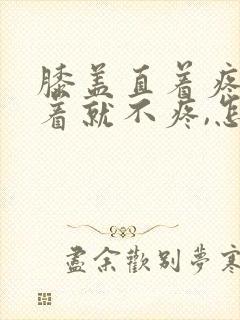 膝盖直着疼
着就不疼,怎
盡余歡别夢寒